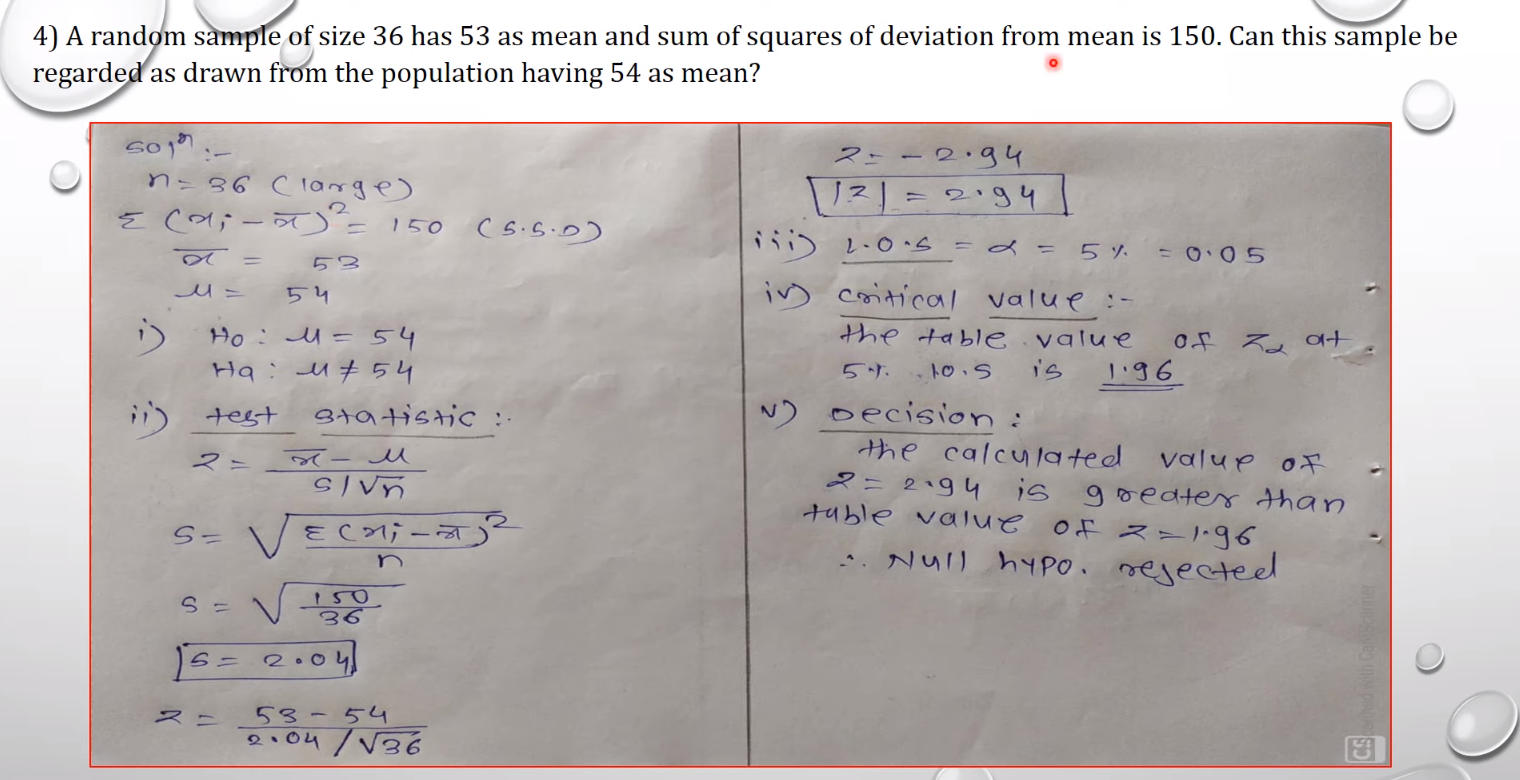 4) A random sample of size 36 has 53 as mean and sum of squares of deviation from mean is 150. Can this sample be
regarded as drawn from the population having 54 as mean?
Solⁿ :-
n = 36 (large)
Σ (xᵢ - x̄)² = 150 (S.S.D)
x̄ = 53
μ = 54
i) Ho : μ = 54
Ha : μ ≠ 54
ii) test statistic :-
z = x̄ - μ / s/√n
s = √ Σ(xᵢ - x̄)² / n
s = √ 150 / 36
s = 2.04
z = 53 - 54 / 2.04 / √36
z = - 2.94
|z| = 2.94
iii) L.O.S = α = 5 % = 0.05
iv) critical value :-
the table value of Zα at
5%. lo.s is 1.96
v) Decision :
the calculated value of
z = 2.94 is greater than
table value of z = 1.96
∴ Null hypo. rejected
Scanned with CamScanner
CS